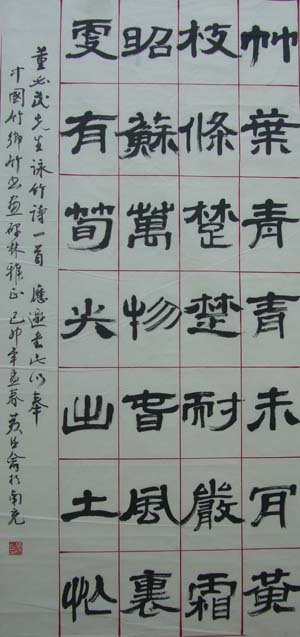 竹葉青青未肎黃
枝條楚楚耐嚴霜
昭蘇萬物春風裏
更有筍尖出土忙
董必武先生詠竹詩一首 應邀書此以奉
中國竹鄉竹書畫碑林雅正 己卯年孟春 於南充